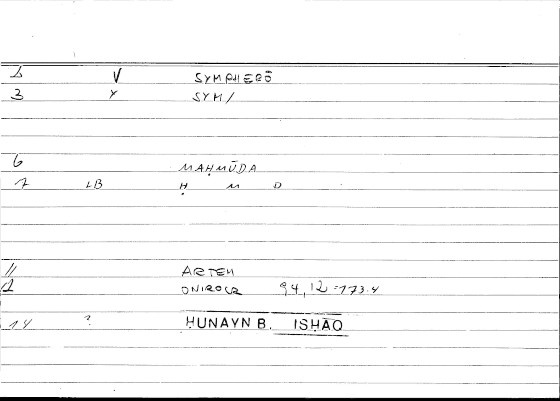 V SYMPHERŌ
3 Y SYM/
6 MAḤMŪDA
7 LB Ḥ M D
11 ARTEM
12 ONIROCR 94,12=173.4
14 ? ḤUNAYN B. ISḤĀQ